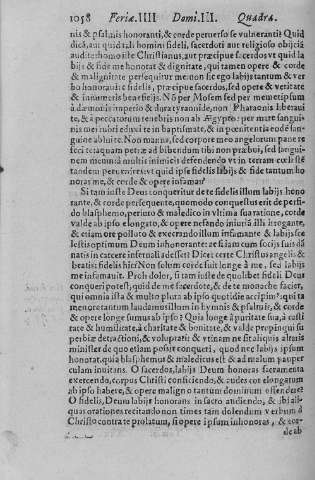 1058 Feriæ. IIII Domi. III. Quadra.
nis & psalmis honoranti, & corde peruerso se vulnerantis Quid
dicã, aut quid tali homini fideli, sacerdoti aut religioso obijciã
audite homo iste Christianus, aut præcipue sacerdos vt quid la
bijs & fide me honorat & dignitate, qui tamen opere & corde
& malignitate persequitur me non sit ego labijs tantum & ver
bo honorauit te fidelis, præcipue sacerdos, sed opere & veritate
& innumeris beneficijs. Nõ per Mosem sed per memetipsum
à dæmonis imperio & dura tyrannide, non Pharaonis liberaui
te, & à peccatorum tenebris non ab Ægypto: per mare sangui-
nis mei rubri eduxi te in baptismate, & in pœnitentia eodẽ san-
guine abluite. Non manna, sed corpore meo angelorum pane re
feci te: aquam petræ ad bibendum tibi non præbui, sed sangui-
nem meum à multis inimicis defendendo vt in terram cœlestẽ
tandem peruenires: vt quid ipse fidelis labijs & fide tantum ho
noras me, & corde & opere infamas?
Si tam iuste Deus conqueritur de te fidelis illum labijs hono
rante, & corde persequente, quomodo conquestus erit de perfi-
do blasphemo, periuro & maledico in vltima sua ratione, corde
valde ab ipso elongato, & opere nefando iniuriã illi irrogante,
& etiam ore polluto & execrando illum infamante & labijs cœ
lestis optimum Deum inhonorante: at si iam cum socijs suis dã
natis in carcere infernali adesset? Dicet certe Christus angelis &
beatis: fidelis hic Non solum corde fuit longe à me, sed labijs
me infamauit. Proh dolor, si tam iuste de quolibet fideli Deus
conqueri potest, quid de me sacerdote, & de te monacho faciet,
qui omnia ista & multo plura ab ipso quotidie accipimus: qui ta
men ore tantum laudamus illum in hymnis & psalmis, & corde
& opere longe sumus ab ipso? Quia longe à puritate sua, à casti
tate & humilitate, à charitate & bonitate, & valde propinqui su
perbiæ detractioni, & voluptati: & vtinam ne sit aliquis altaris
minister de quo etiam posset conqueri, quod nec labijs ipsum
honorat, quia blasphemus & maledicus est & ad malum pauper
culam inuitans. O sacerdos, labijs Deum honoras sacramenta
exercendo, corpus Christi conficiendo, & audes cor elongatum
ab ipso habere, & opere maligno tantum dominum offendere?
O fidelis, Deum labijs honorans in sacro audiendo, & ibi ali-
quas orationes recitando non times tam dolendum verbum à
Christo contra te prolatum, si opere ipsum inhonoras, & cor-
de ab